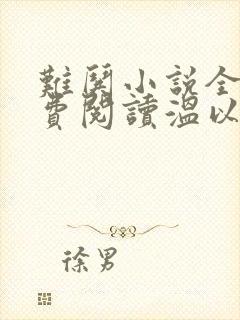 難鬨小説全
費閱讀溫以
徐男